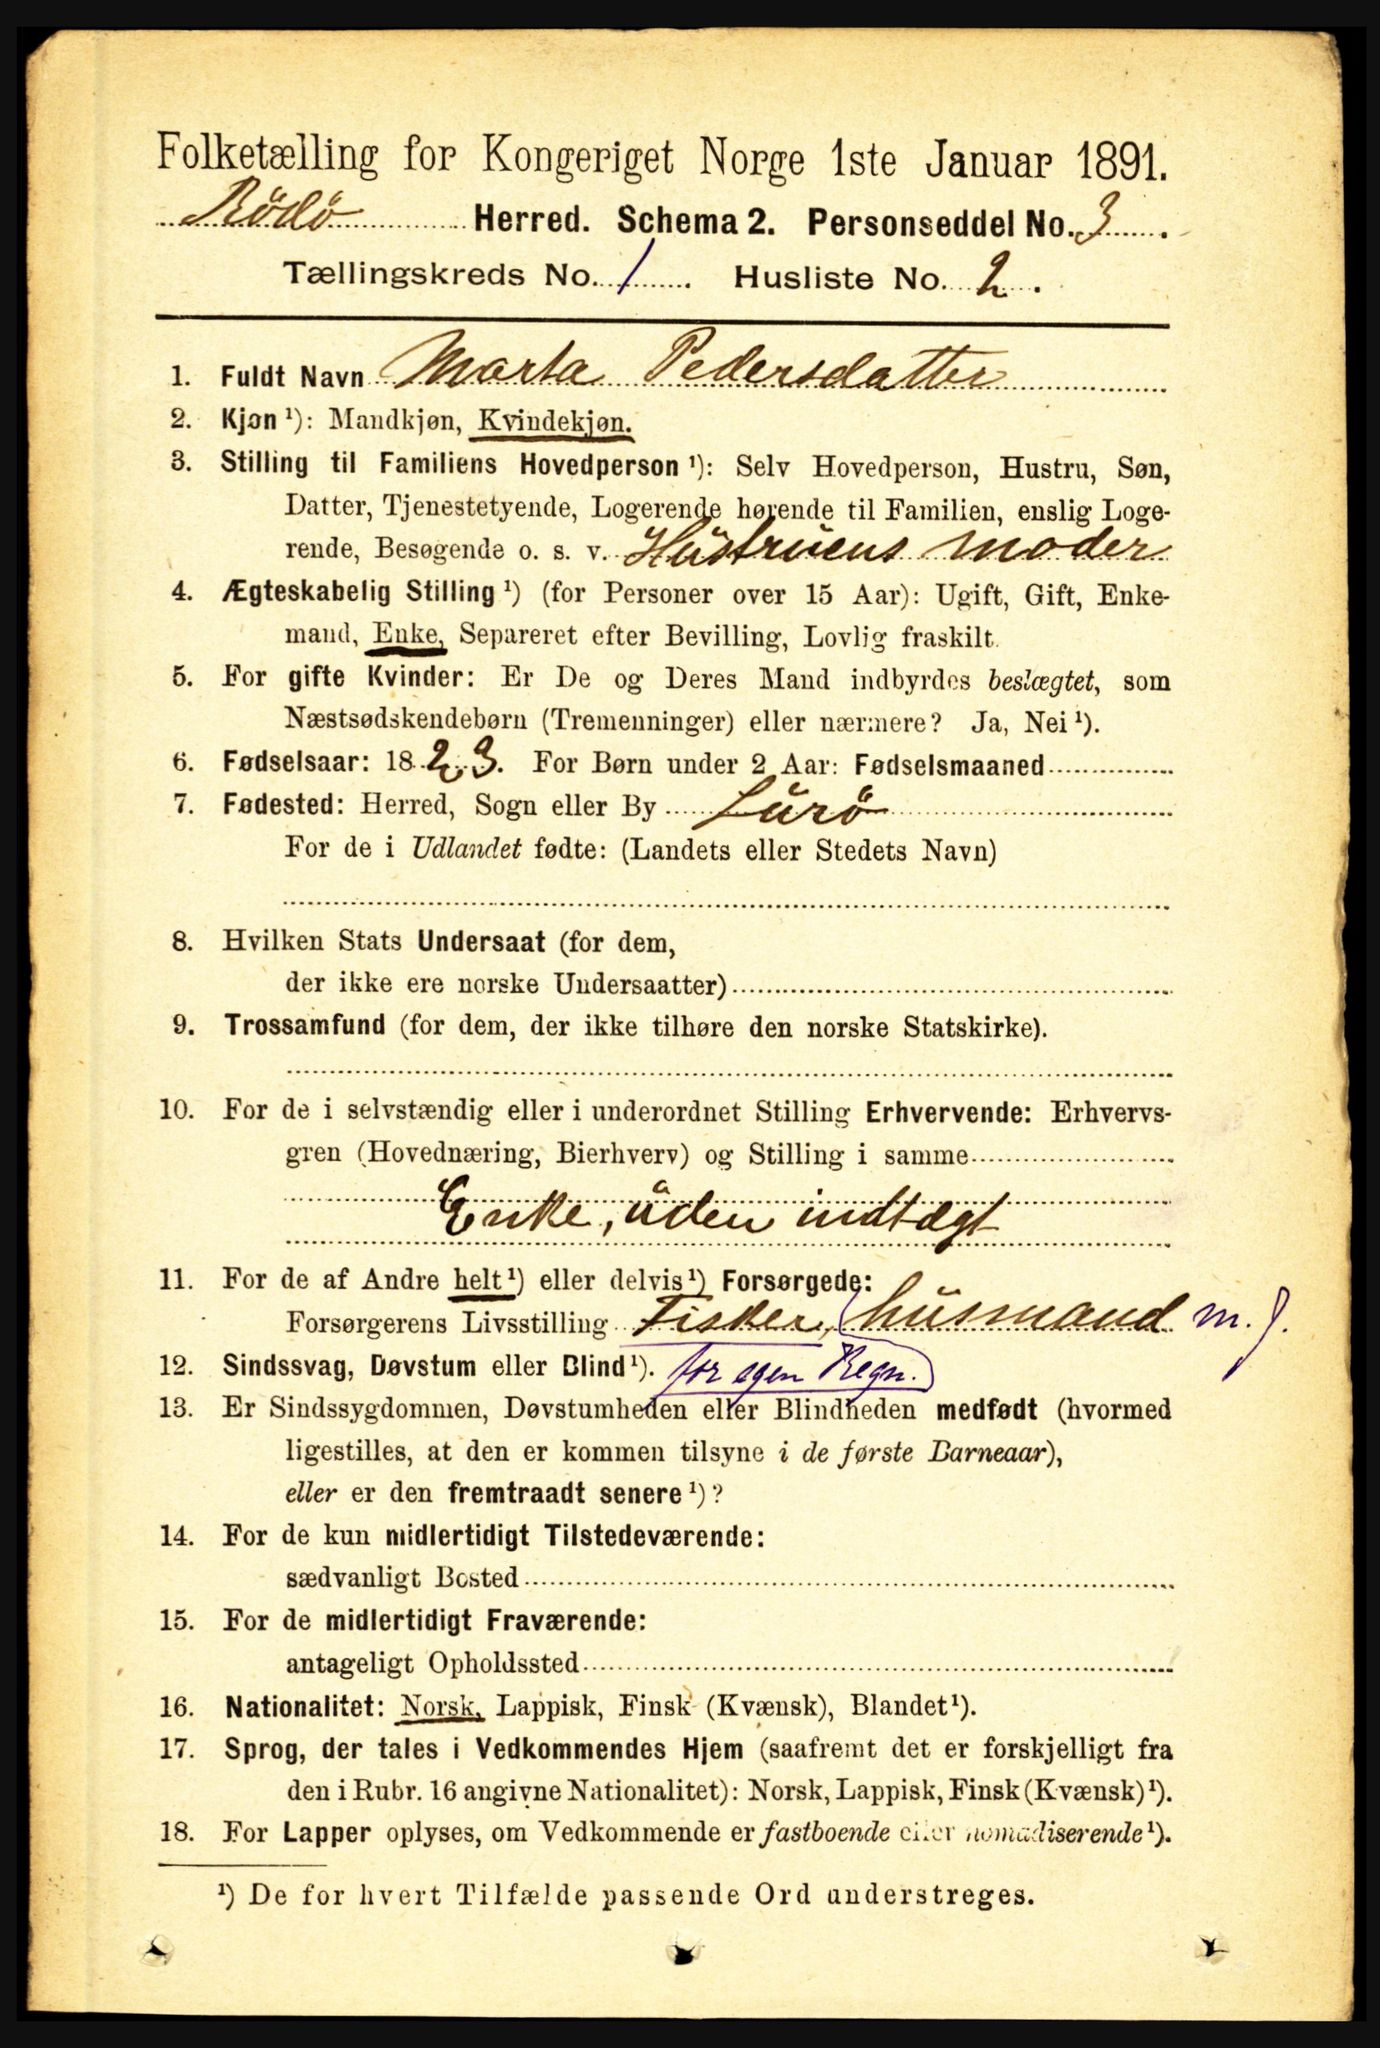 Folketælling for Kongeriget Norge 1ste Januar 1891.
Rödö Herred. Schema 2. Personseddel No. 3.
Tællingskreds No. 1. Husliste No. 2.
1. Fuldt Navn Marta Pedersdatter
2. Kjøn ¹): Mandkjøn, Kvindekjøn.
3. Stilling til Familiens Hovedperson ¹): Selv Hovedperson, Hustru, Søn,
Datter, Tjenestetyende, Logerende hørende til Familien, enslig Loge-
rende, Besøgende o. s. v. Hustruens moder
4. Ægteskabelig Stilling ¹) (for Personer over 15 Aar): Ugift, Gift, Enke-
mand, Enke, Separeret efter Bevilling, Lovlig fraskilt.
5. For gifte Kvinder: Er De og Deres Mand indbyrdes beslægtet, som
Næstsødskendebørn (Tremenninger) eller nærmere? Ja, Nei ¹).
6. Fødselsaar: 1823. For Børn under 2 Aar: Fødselsmaaned
7. Fødested: Herred, Sogn eller By Lurö
For de i Udlandet fødte: (Landets eller Stedets Navn)
8. Hvilken Stats Undersaat (for dem,
der ikke ere norske Undersaatter)
9. Trossamfund (for dem, der ikke tilhøre den norske Statskirke).
10. For de i selvstændig eller i underordnet Stilling Erhvervende: Erhvervs-
gren (Hovednæring, Bierhverv) og Stilling i samme
Enke, uden indtægt
11. For de af Andre helt ¹) eller delvis ¹) Forsørgede:
Forsørgerens Livsstilling Fisker, husmand m. j.
12. Sindssvag, Døvstum eller Blind ¹). for egen Regn.
13. Er Sindssygdommen, Døvstumheden eller Blindheden medfødt (hvormed
ligestilles, at den er kommen tilsyne i de første Barneaar),
eller er den fremtraadt senere ¹)?
14. For de kun midlertidigt Tilstedeværende:
sædvanligt Bosted
15. For de midlertidigt Fraværende:
antageligt Opholdssted
16. Nationalitet: Norsk, Lappisk, Finsk (Kvænsk), Blandet ¹).
17. Sprog, der tales i Vedkommendes Hjem (saafremt det er forskjelligt fra
den i Rubr. 16 angivne Nationalitet): Norsk, Lappisk, Finsk (Kvænsk) ¹).
18. For Lapper oplyses, om Vedkommende er fastboende eller nomadiserende ¹).
¹) De for hvert Tilfælde passende Ord understreges.